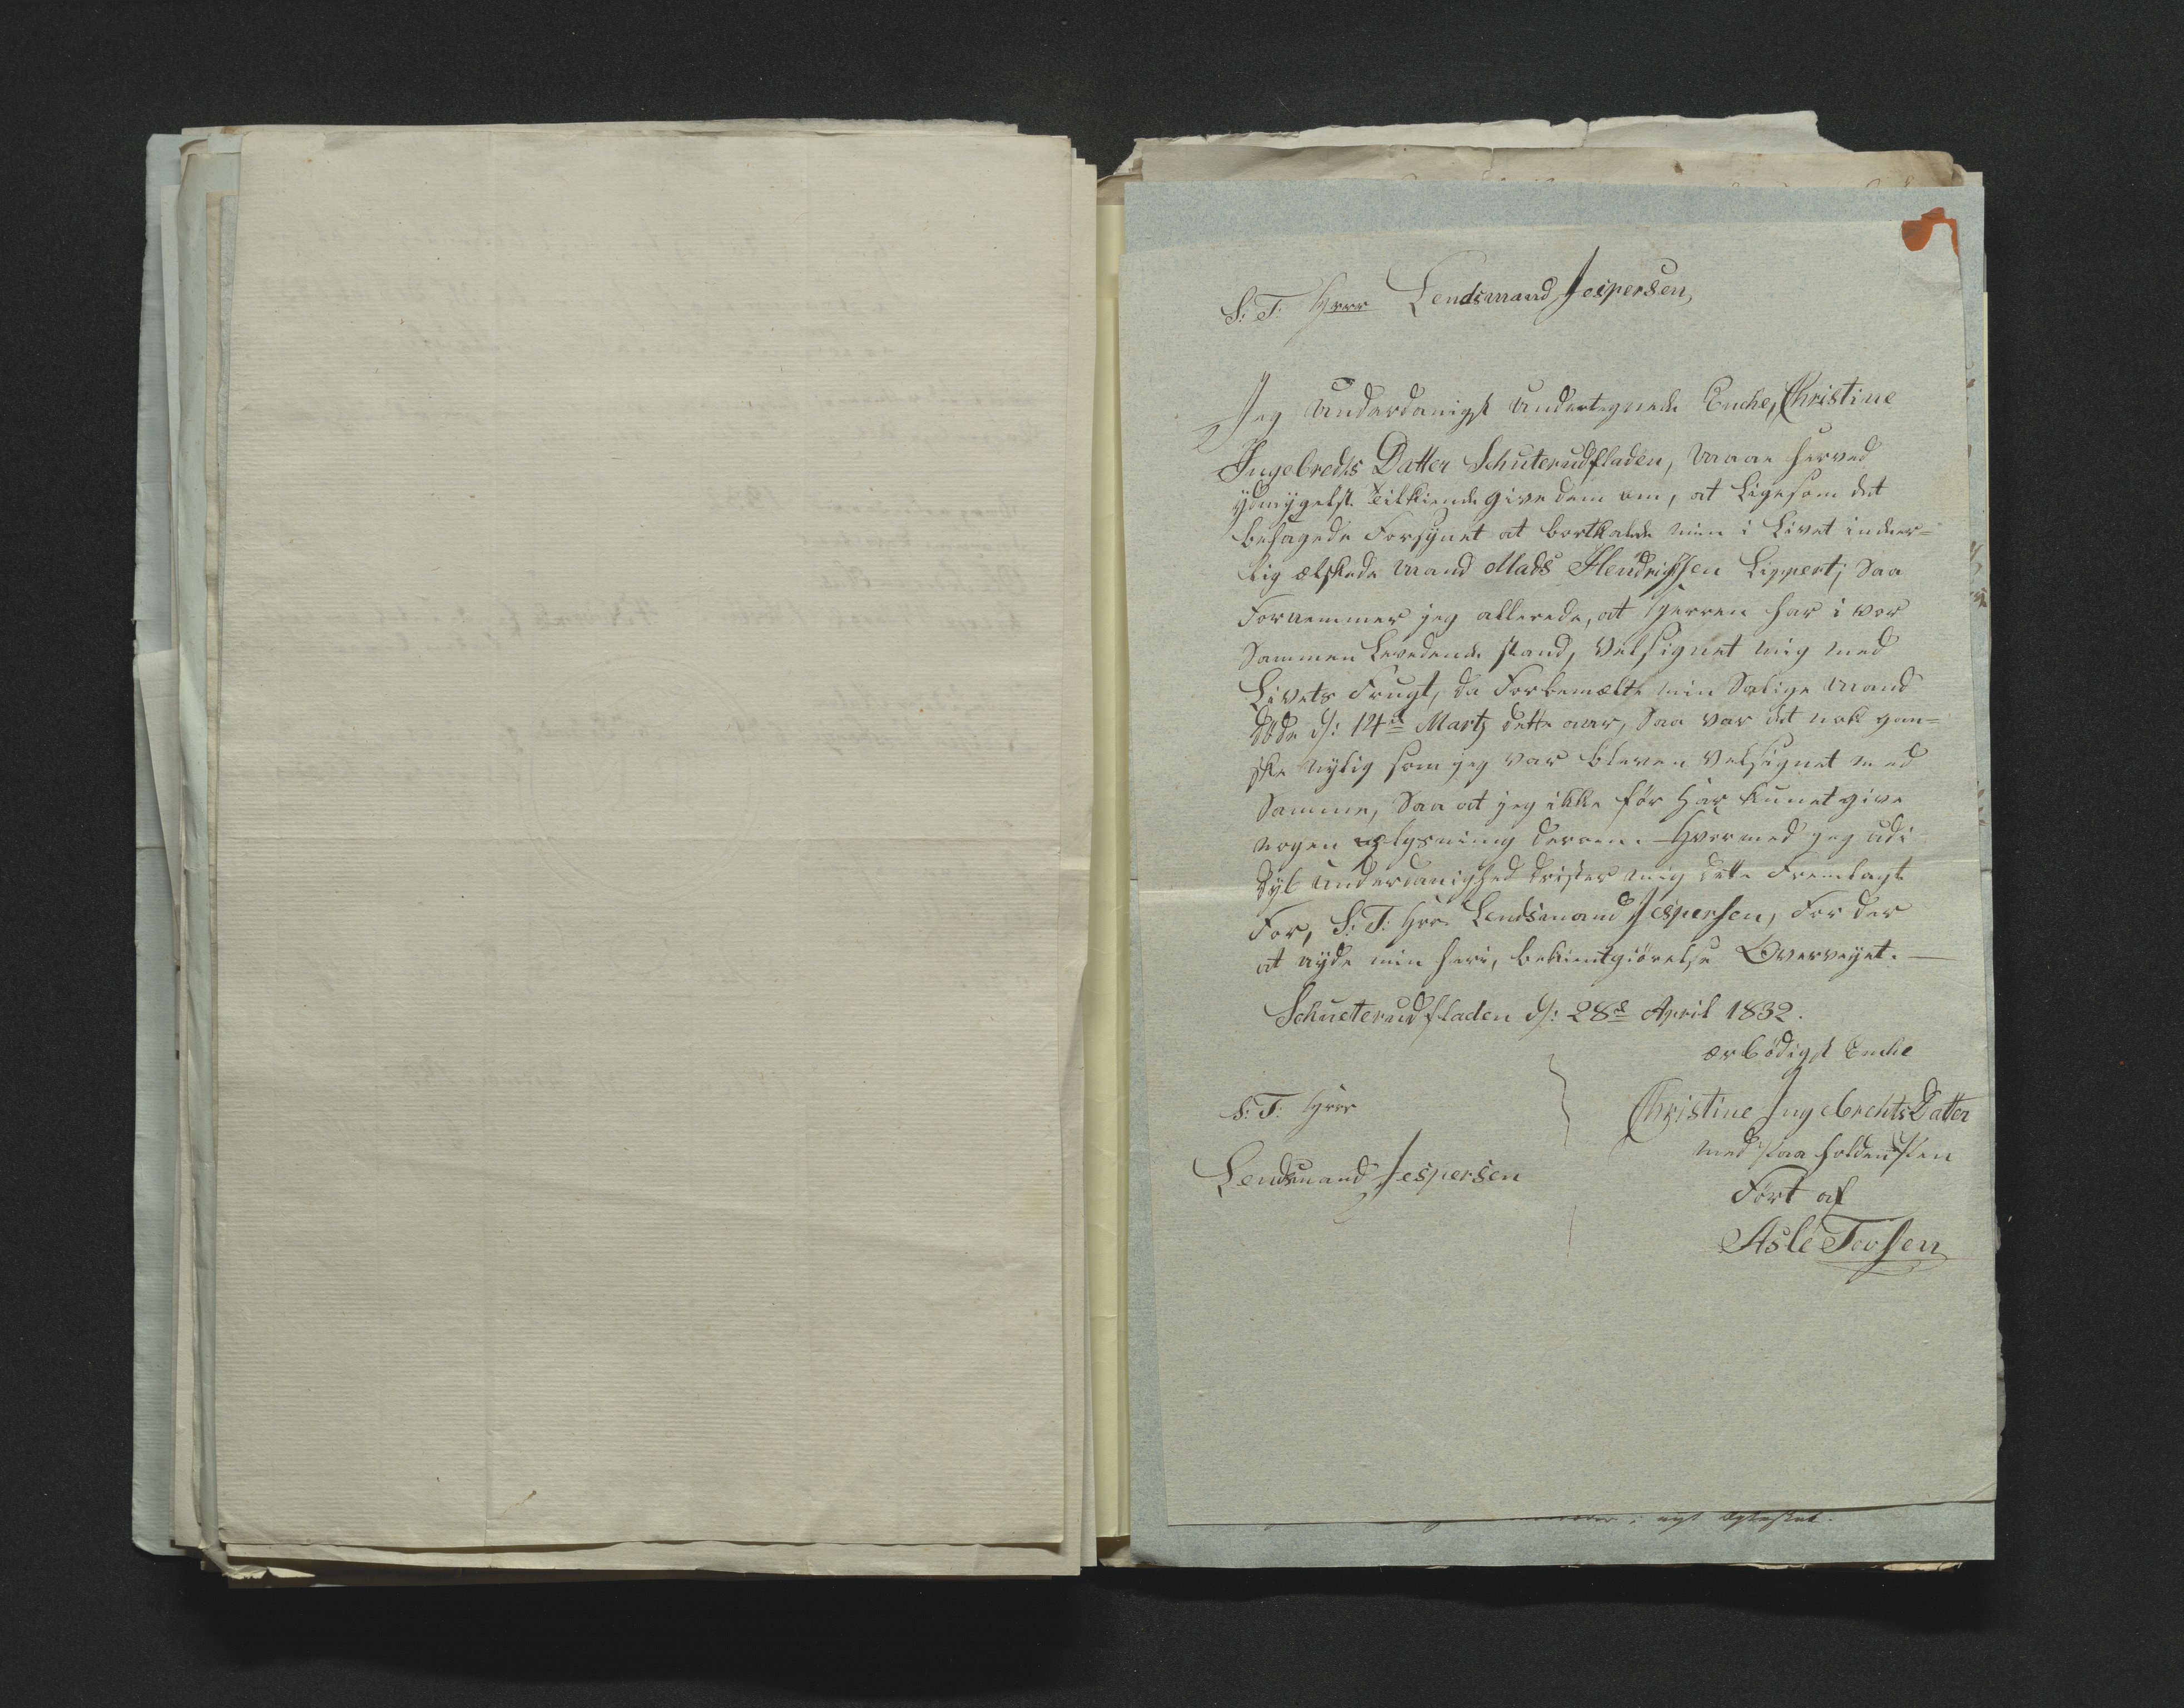 S: T: Herr Lendsmand Jespersen,
Jeg Underdanigst Undertegnede Enche, Christine
Ingebreds Datter Schuterudfladen, Maae herved
ydmygelst Tilkiende give dem om, at Ligesom det
behagede Forsynet at bortkalde min i Livet inder-
lig elskede Mand Mads Hendrichsen Lippert; Saa
Fornemmer jeg allerede, at Herren har i vor
Sammen Levedende stand, Velsignet mig med
Livets Frugt, da Forbemelte min Salige Mand
døde d: 14de Martz dette aar, Saa var det nok gan-
ske Nylig som jeg var bleven Velsignet med
Samme, Saa at jeg ikke før Har kunet give
nogen oplysning derom. Hvormed jeg udi
dyb Underdanighed drister mig dette Fremlagt
For, S: T: Hrr. Lendsmand Jespersen, For der
at nyde min heri, bekientgiörelse Overveyet. —
Schueterudfladen d: 28de April 1832.
ærbödigst Enche
S: T: Herr
Christine IngebrehtsDatter
med Paa holden Pen
Lendsmand Jespersen
Ført af
Asle Toosen
i nyt Egteskab.